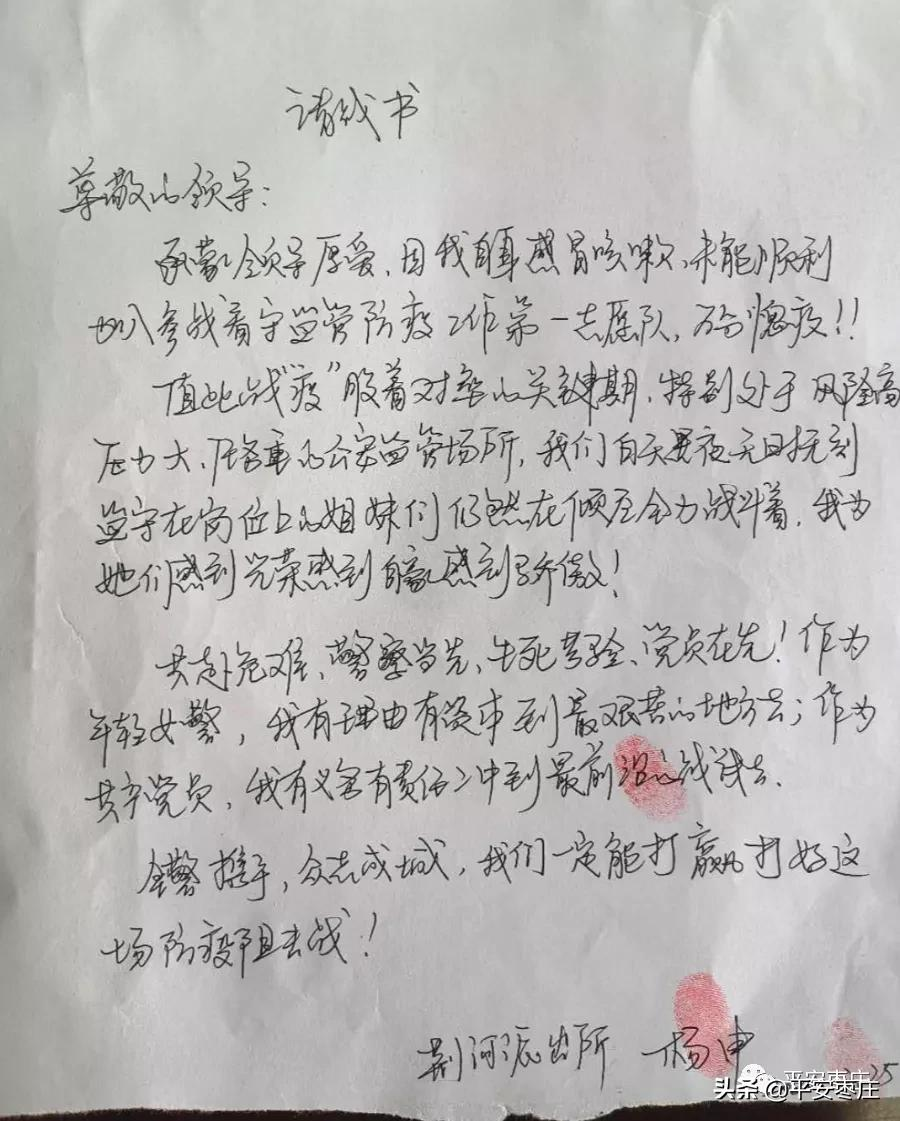 请战书
尊敬的领导：
承蒙领导厚爱，因我自身感冒咳嗽，未能顺利
加入参战看守监管防疫工作第一志愿队，万分愧疚！！
值此战“疫”胶着对垒的关键期，特别处于风险高
压力大、任务重的公安监管场所，我们白天黑夜无时无刻
坚守在岗位上的姐妹们仍然在倾尽全力战斗着，我为
她们感到光荣感到自豪感到骄傲！
共赴危难、警察当先、生死考验、党员在先！作为
年轻女警，我有理由有资本到最艰苦的地方去；作为
共产党员，我有义务有责任冲到最前沿的战线去.
全警携手，众志成城，我们一定能打赢打好这
场防疫阻击战！
荆河派出所 杨申
25
平安枣庄
头条@平安枣庄